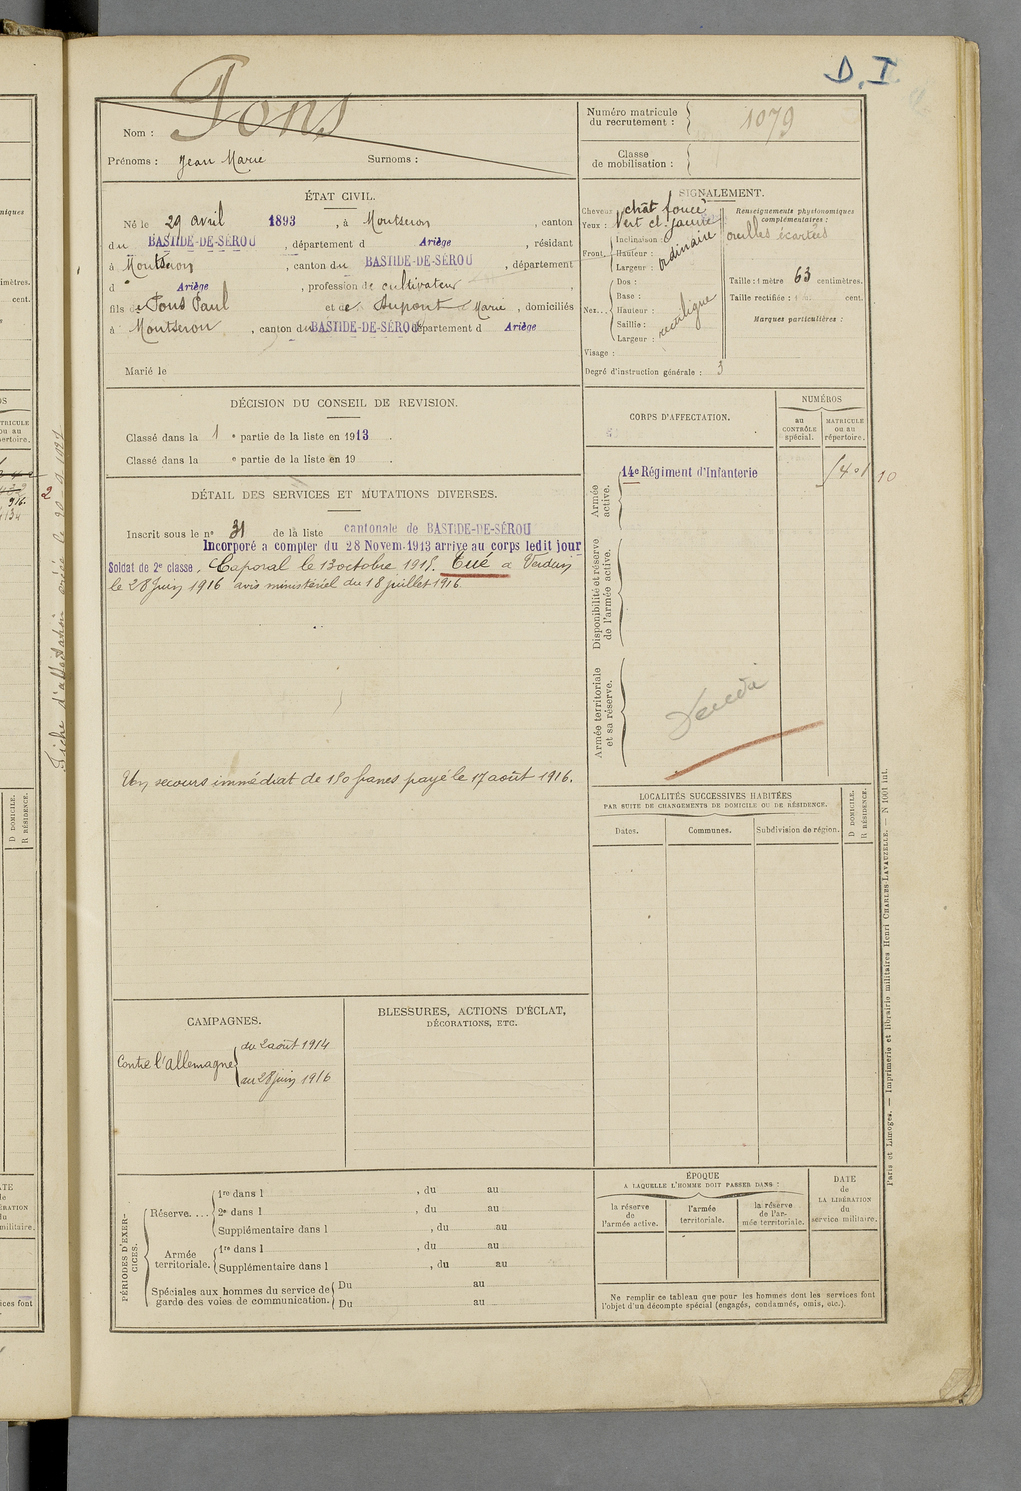 D. I.
Nom : Pons
Prénoms : Jean Marie Surnoms :
Numéro matricule
du recrutement : 1079
Classe
de mobilisation :
ÉTAT CIVIL.
Né le 29 avril 1893, à Montseron, canton
du BASTIDE-DE-SÉROU, département d Ariège, résidant
à Montseron, canton du BASTIDE-DE-SÉROU, département
d Ariège, profession de cultivateur,
fils de Pons Paul et de Dupont Marie, domiciliés
à Montseron, canton du BASTIDE-DE-SÉROU département d Ariège
Marié le
SIGNALEMENT.
Cheveux chât foncé
Yeux : Vert cl. jaune
Front. Inclinaison :
Hauteur : ordinaire
Largeur :
Nez... Dos :
Base :
Hauteur : rectiligne
Saillie :
Largeur :
Visage :
Degré d'instruction générale : 3
Renseignements physionomiques
complémentaires :
oreilles écartées
Taille : 1 mètre 63 centimètres.
Taille rectifiée : cent.
Marques particulières :
DÉCISION DU CONSEIL DE REVISION.
Classé dans la 1 e partie de la liste en 1913.
Classé dans la e partie de la liste en 19 .
DÉTAIL DES SERVICES ET MUTATIONS DIVERSES.
Inscrit sous le nº 31 de la liste cantonale de BASTIDE-DE-SÉROU
Incorporé à compter du 28 Novem. 1913 arrivé au corps ledit jour
Soldat de 2e classe. Caporal le 13 octobre 1915. Tué à Verdun
le 28 Juin 1916 avis ministériel du 18 juillet 1916
Un secours immédiat de 150 francs payé le 17 août 1916.
CORPS D'AFFECTATION.
NUMÉROS
au
CONTRÔLE
spécial.
MATRICULE
ou au
répertoire.
Armée
active.
14e Régiment d'Infanterie
1401
10
Disponibilité et réserve
de l'armée active.
Armée territoriale
et sa réserve.
LOCALITÉS SUCCESSIVES HABITÉES
PAR SUITE DE CHANGEMENTS DE DOMICILE OU DE RÉSIDENCE.
Dates. Communes. Subdivision de région.
D DOMICILE.
R RÉSIDENCE.
CAMPAGNES.
Contre l'allemagne
du 2 août 1914
au 28 juin 1916
BLESSURES, ACTIONS D'ÉCLAT,
DÉCORATIONS, ETC.
PÉRIODES D'EXER-
CICES.
Réserve....
1re dans l , du au
2e dans l , du au
Supplémentaire dans l , du au
Armée
territoriale.
1re dans l , du au
Supplémentaire dans l , du au
Spéciales aux hommes du service de
garde des voies de communication.
Du au
Du au
ÉPOQUE
A LAQUELLE L'HOMME DOIT PASSER DANS :
la réserve
de
l'armée active.
l'armée
territoriale.
la réserve
de l'ar-
mée territoriale.
DATE
de
LA LIBÉRATION
du
service militaire.
Ne remplir ce tableau que pour les hommes dont les services font
l'objet d'un décompte spécial (engagés, condamnés, omis, etc.).
Paris et Limoges. — Imprimerie et librairie militaires Henri CHARLES-LAVAUZELLE. — N 1001 int.
D DOMICILE.
R RÉSIDENCE.